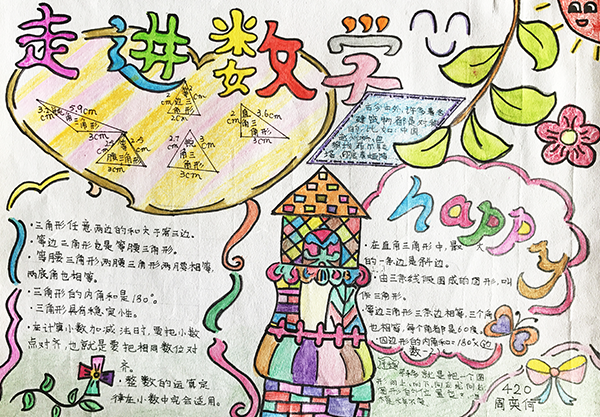 走进数学
2cm
等边三角形
2cm
2cm
3.2cm
5.9cm
钝角三角形
3cm
2.5
2.5
等腰三角形
3cm
2.7cm
3cm
锐角三角形
3cm
2cm
3.6cm
直角三角形
3cm
古今中外,许多著名
建筑物都是对称
的。比如:中国
happy
·三角形任意两边的和大于第三边。
·等边三角形也是等腰三角形。
·等腰三角形两腰三角形两腰相等,
两底角也相等。
·三角形的内角和是180°。
·三角形具有稳定性。
·在计算小数加减法时,要把小数
点对齐,也就是要把相同数位对
齐。
·整数的运算定
律在小数中完全适用。
·在直角三角形中,最大
的一条边是斜边。
·由三条线段围成的图形,叫
做三角形。
·等边三角形三条边相等,三个角
也相等,每个角都是60度。
·四边形的内角和=180°×(边
数-2)
就是把一个图
420
周英